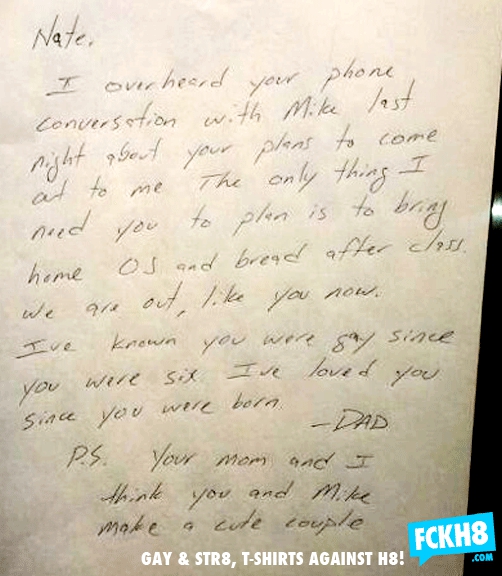 Nate,
I overheard your phone
conversation with Mike last
night about your plans to come
out to me The only thing I
need you to plan is to bring
home OJ and bread after class.
We are out, like you now.
I've known you were gay since
you were six I've loved you
since you were born.
-DAD
P.S. Your mom and I
think you and Mike
make a cute couple
GAY & STR8, T-SHIRTS AGAINST H8!
FCKH8
.COM